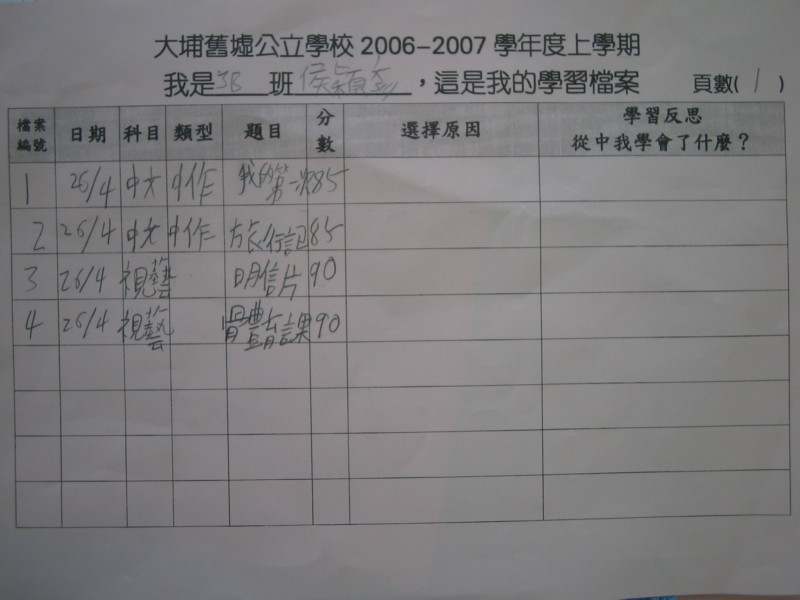 大埔舊墟公立學校 2006–2007 學年度上學期
我是3B班侯穎，這是我的學習檔案 頁數( 1 )
檔案編號 日期 科目 類型 題目 分數 選擇原因 學習反思 從中我學會了什麼？
1 26/4 中文 中作 我的第一次 85
2 26/4 中文 中作 旅行記 85
3 26/4 視藝 明信片 90
4 26/4 視藝 體育課 90